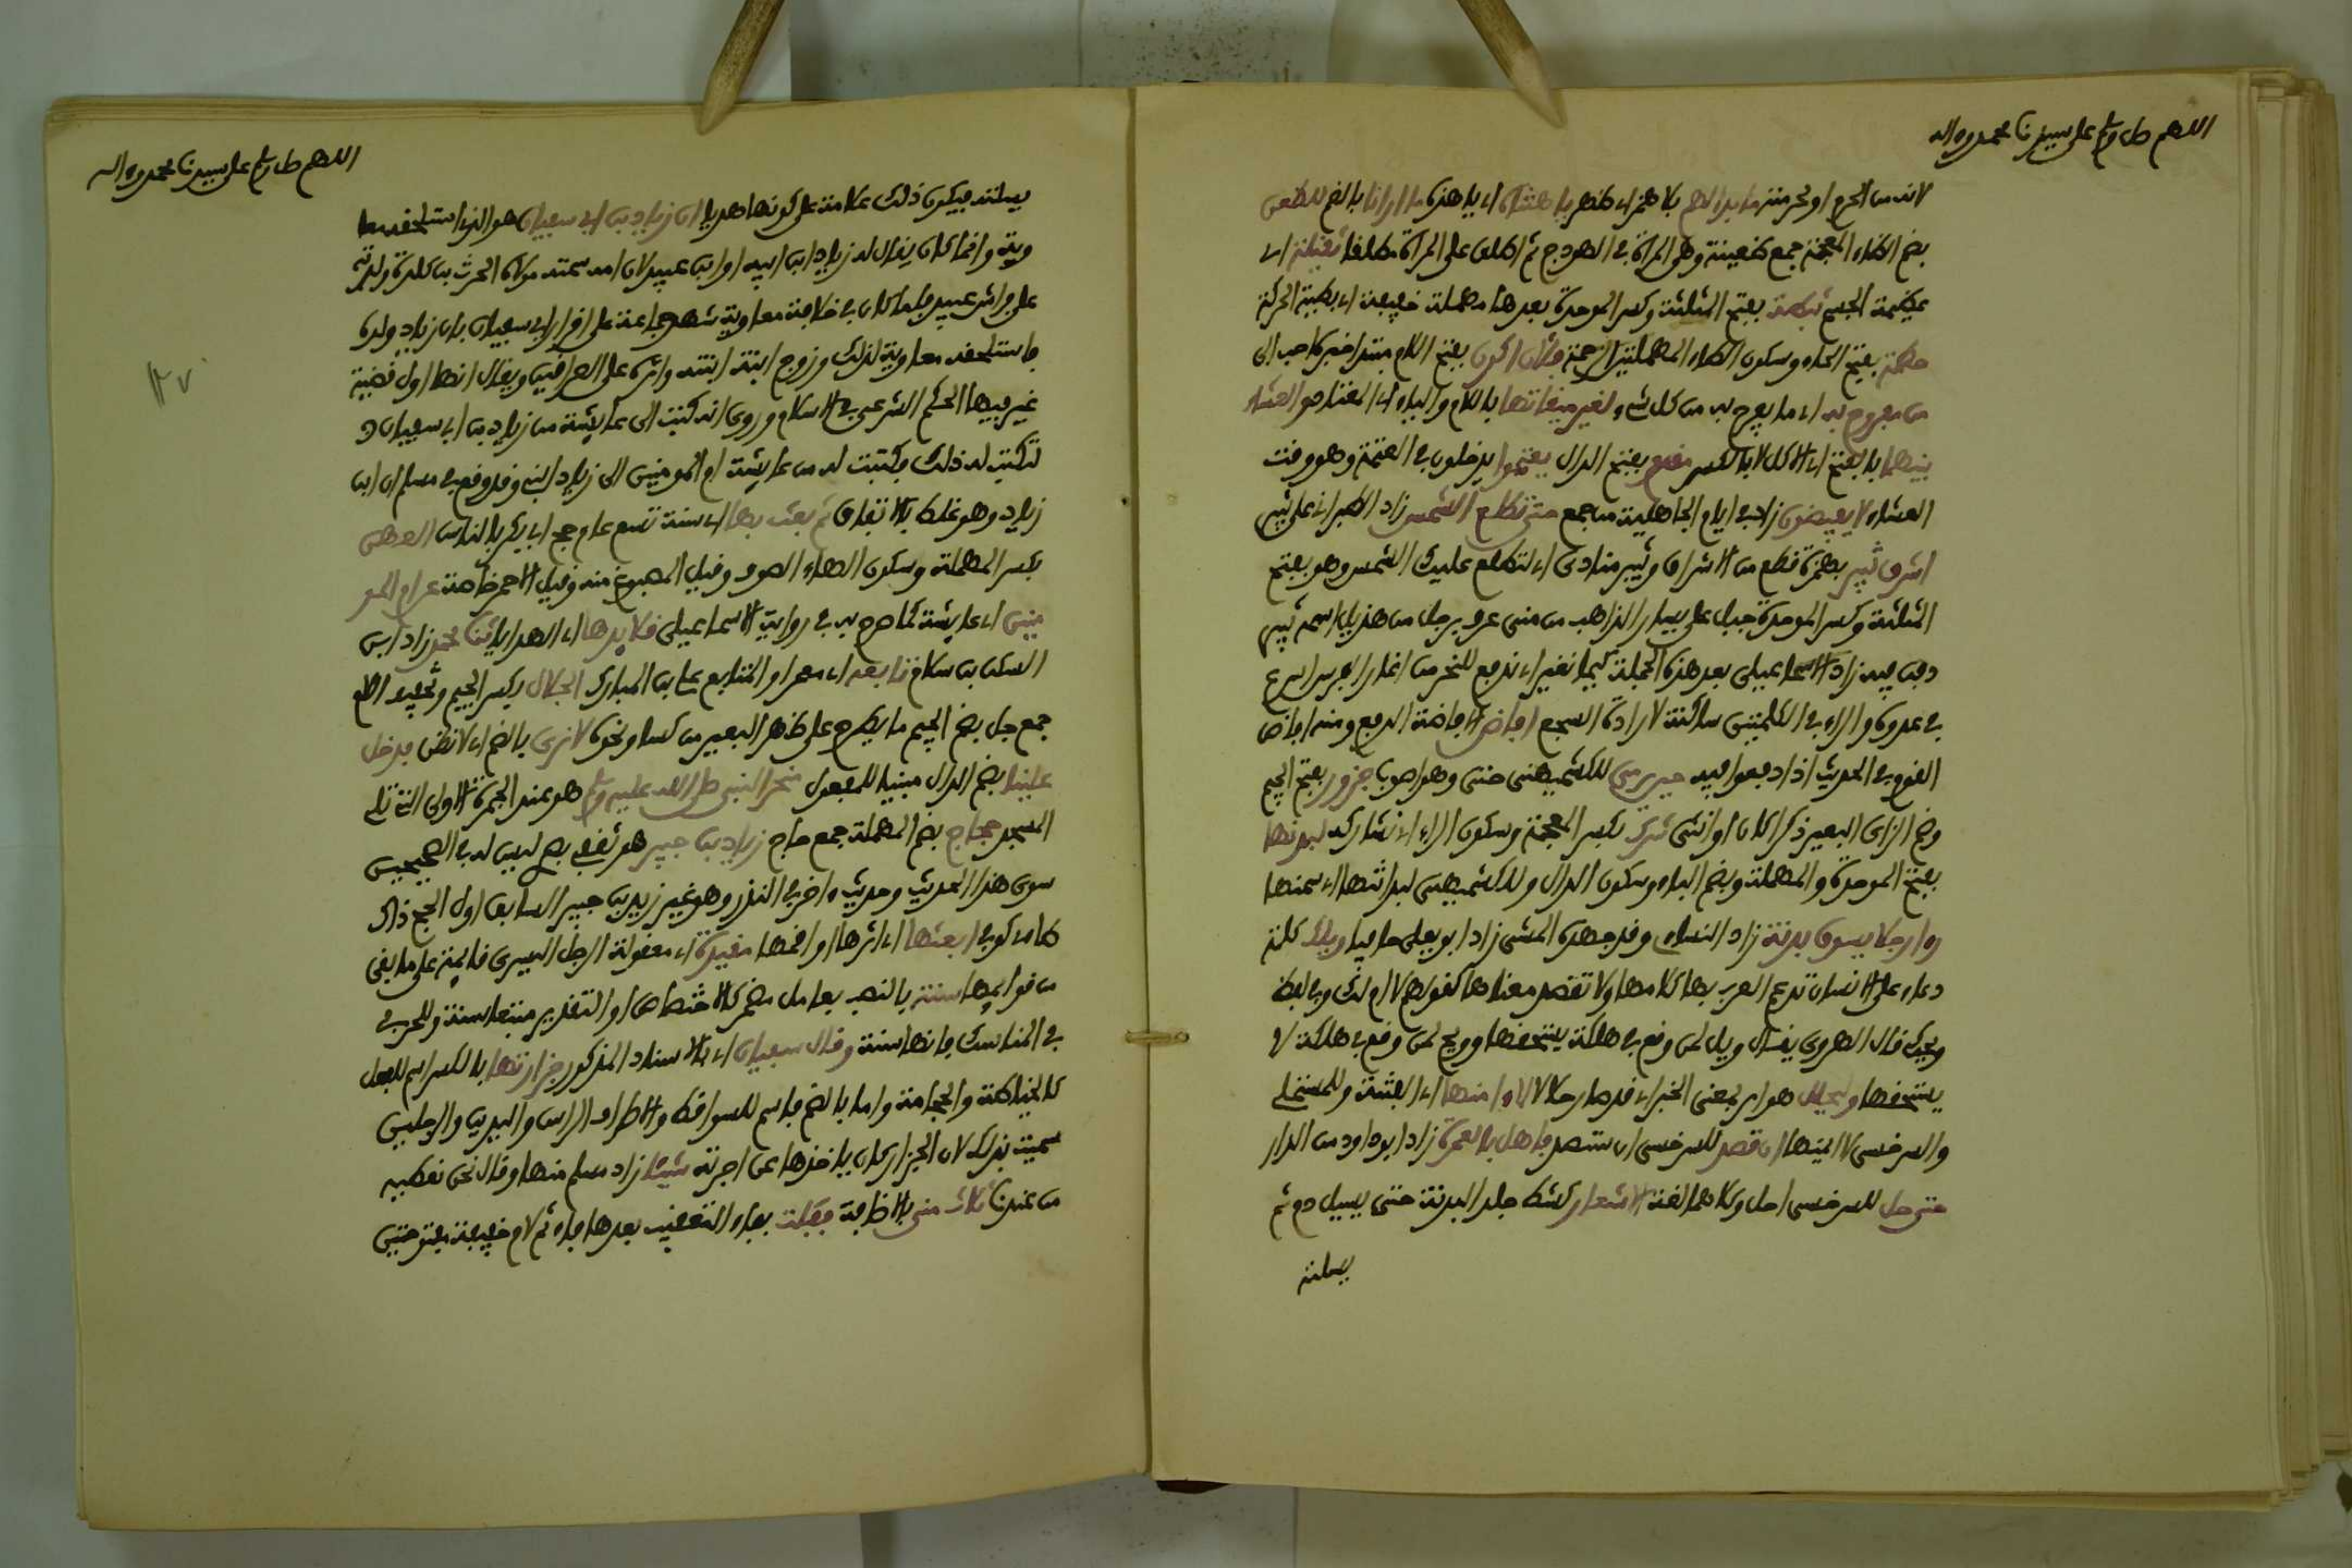 اللهم صل وسلم على سيدنا محمد وءاله
لانه من الحرم او لحرمته ما بدا لهم بلا همز اي ظهر يا هنتاه اي يا هذه ما ارانا بالضم للظعن
بضم الظاء المعجمة جمع ظعينة وهي المراة في الهودج ثم اطلق على المراة مطلقا ثقيلة اي
عظيمة الجسم ثبطة بفتح المثلثة وكسر الموحدة بعدها مهملة خفيفة اي بطيئة الحركة
حطمة بفتح الحاء وسكون الطاء المهملتين الزحمة فلان اكون بفتح اللام مبتدا خبره احب الى
من مفروح به اي ما يفرح به من كل شيء لغير ميقاتها باللام والباء اي المعتاد والعشاء
بينهما بالفتح اي الاكل لا بالكسر مفتح بفتح الدال يعتموا يدخلون في العتمة وهو وقت
العشاء لا يفيضون زاد في ايام الجاهلية من جمع حتى تطلع الشمس زاد الطبراني على ثبير
اشرق ثبير بهمزة قطع من الاشراق وثبير منادى اي لتطلع عليك الشمس وهو بفتح
المثلثة وكسر الموحدة جبل على يسار الذاهب من منى عرف برجل من هذيل اسمه ثبير
دفن فيه زاد الاسماعيلي بعد هذه الجملة كيما نغير اي ندفع للنحر من اغار الفرس اسرع
في عدوه والراء في الكلمتين ساكنة لارادة السجع افاض الافاضة الدفع ومنه افاض
القوم في الحديث اذا دفعوا فيه حين رمى للكشميهني حتى وهو اصوب جزور بفتح الجيم
وضم الزاي البعير ذكرا كان او انثى شرك بكسر المعجمة وسكون الراء اي تشارك لبدنها
بفتح الموحدة والمهملة وبضم الباء وسكون الدال وللكشميهني لبدانتها اي سمنها
راى رجلا يسوق بدنة زاد النسائي وقد جهده المشي زاد ابو يعلى حافيا ويلك كلمة
دعاء على الانسان تدعم العرب بها كلامها ولا تقصد معناها كقولهم لا ام لك وفي لفظ
ويحك قال الهروي يقال ويل لمن وقع في هلكة يستحقها وويح لمن وقع في هلكة لا
يستحقها وليحلل هو امر بمعنى الخبر اي قد صار حلالا الا ءامنها اي الفتنة وللمستملي
والسرخسي لا ايمنها ان تصد للسرخسي ان ستصد فاهل بالعمرة زاد ابو داود من الدار
حتى حل للسرخسي احل وكلاهما لغة الاشعار كشط جلد البدنة حتى يسيل دم ثم
يسلته
اللهم صل وسلم على سيدنا محمد وءاله
يسلته فيكون ذلك علامة على كونها هديا ان زياد بن ابي سفيان هو الذي استلحقه معا
وية وانما كان يقال له زياد ابن ابيه او ابن عبيد لان امه سمية مولاة الحرث بن كلدة ولدته
على فراش عبيد فلما كان في خلافة معاوية شهد جماعة على اقرار ابي سفيان بان زياد ولده
فاستلحقه معاوية لذلك وزوج ابنه ابنته وامره على العراقين ويقال انها اول قضية
غير فيها الحكم الشرعي في الاسلام وروي انه كتب الى عائشة من زياد بن ابي سفيان و
لتكتب له ذلك فكتبت له من عائشة ام المومنين الى زياد ابني وقد وقع في مسلم ان ابن
زياد وهو غلط بالاتفاق ثم بعث بها اي سنة تسع عام حج ابي بكر بالناس العهن
بكسر المهملة وسكون الهاء الصوف وقيل المصبوغ منه وقيل الاحمر خاصة عن ام المو
منين اي عائشة كما صرح به في رواية الاسماعيلي قلائدها اي الهدايا ثنا محمد زاد ابن
السكن بن سلام تابعه اي معمرا والمتابع علي بن المبارك الجلال بكسر الجيم وتخفيف اللام
جمع جل بضم الجيم ما يطرح على ظهر البعير من كساء ونحوه لا نرى بالضم اي لا نظن فدخل
علينا بضم الدال مبنيا للمفعول منحر النبي صلى الله عليه وسلم هو عند الجمرة الاولى التي تلي
المسجد حجاج بضم المهملة جمع حاج زياد بن جبير هو ثقفي بصري ليس له في الصحيحين
سوى هذا الحديث وحديث ءاخر في النذر وهو غير زيد بن جبير السابق اول الحج ذاك
طاءي كوفي ابعثها اي اثرها او اقمها مقيدة اي معقولة الرجل اليسرى قائمة على ما بقي
من قوائمها سنة بالنصب بعامل مضمر كالاختصاص او التقدير متبعا سنة وللحربي
في المناسك فانها سنة وقال سفيان اي بالاسناد المذكور جزارتها بالكسر اسم للفعل
كالخياطة والحجامة واما بالضم فاسم للسواقط والاطراف الراس واليدين والرجلين
سميت بذلك لان الجزار كان ياخذها عن اجرته شيئا زاد مسلم منها وقال نحن نعطيه
من عندنا ثلاث منى بالاضافة فقبلت بفاء التعقيب بعدها فاء ثم لام خفيفة مفتوحتين
١٢٧